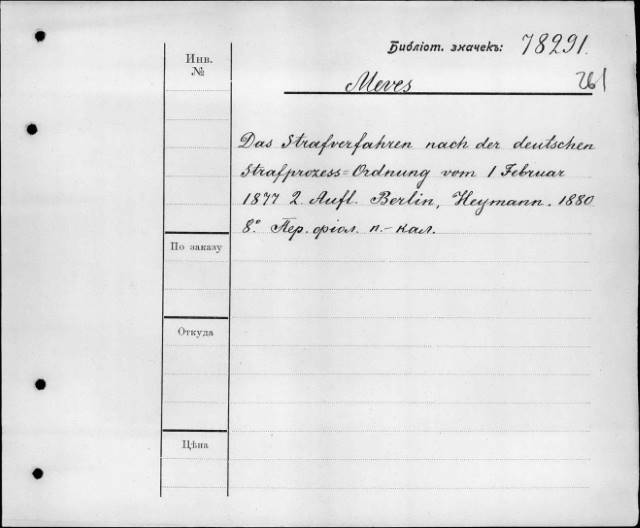 Библіот. значекъ: 78291.
Инв.
№
Meves
261
Das Strafverfahren nach der deutschen
Strafprozess=Ordnung vom 1 Februar
1877 2. Aufl. Berlin, Heymann. 1880
8° Пер. фіол. п.-кал.
По заказу
Откуда
Цѣна